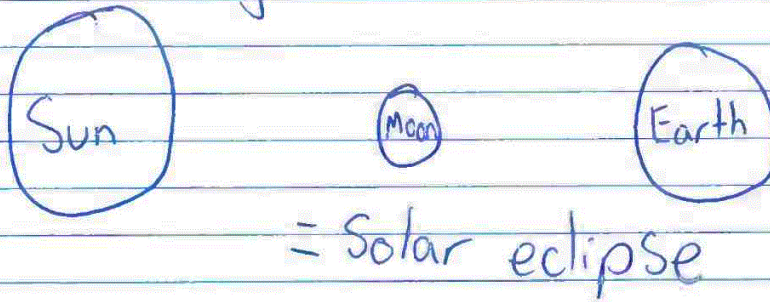 Sun Moon Earth
= Solar eclipse